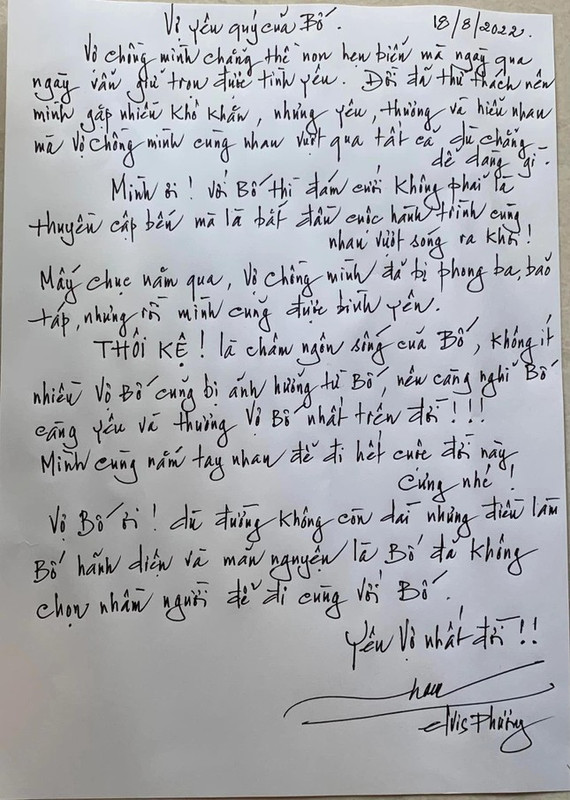 Vợ yêu quý của Bố.
18/8/2022.
Vợ chồng mình chẳng thề non hẹn biển mà ngày qua
ngày vẫn giữ trọn được tình yêu. Đời đã thử thách nên
mình gặp nhiều khó khăn, nhưng yêu, thương và hiểu nhau
mà vợ chồng mình cùng nhau vượt qua tất cả dù chẳng
dễ dàng gì.
Mình ơi! Với Bố thì đám cưới không phải là
thuyền cập bến mà là bắt đầu cuộc hành trình cùng
nhau vượt sóng ra khơi!
Mấy chục năm qua, vợ chồng mình đã bị phong ba, bão
táp, nhưng rồi mình cũng được bình yên.
THÔI KỆ! là châm ngôn sống của Bố, không ít
nhiều vợ Bố cũng bị ảnh hưởng từ Bố, nên càng nghĩ Bố
càng yêu và thương Vợ Bố nhất trên đời!!!
Mình cùng nắm tay nhau để đi hết cuộc đời này
cưng nhé!
Vợ Bố ơi! dù đường không còn dài nhưng điều làm
Bố hãnh diện và mãn nguyện là Bố đã không
chọn nhầm người để đi cùng với Bố.
Yêu Vợ nhất đời!!
Elvis Phương